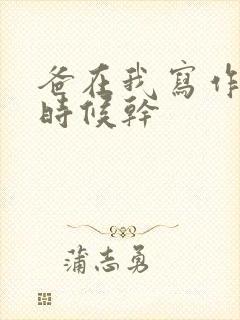 爸在我寫作
時候幹
蒲志勇